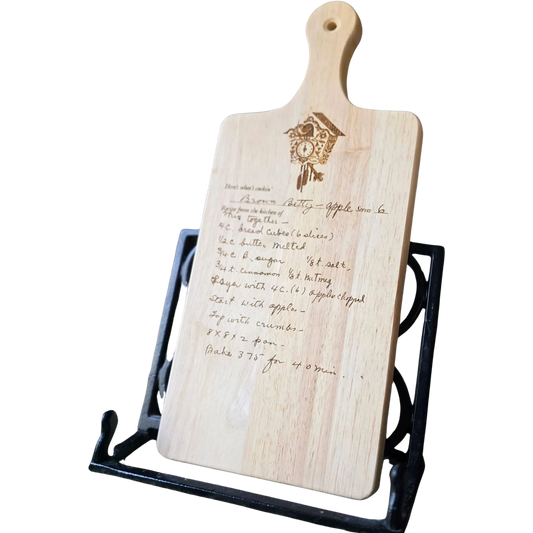 Here's what's cookin'
Brown Betty - apple Serves 6
Recipe from the kitchen of
Mix together -
4 c. bread cubes (6 slices)
1/2 c butter melted
3/4 c B. sugar 1/8 t. salt.
3/4 t. cinnamon 1/8 t. nutmeg
Layer with 4 c. (6) apples chopped
Start with apples -
Top with crumbs -
8 x 8 x 2 pan -
Bake 375 for 40 min.